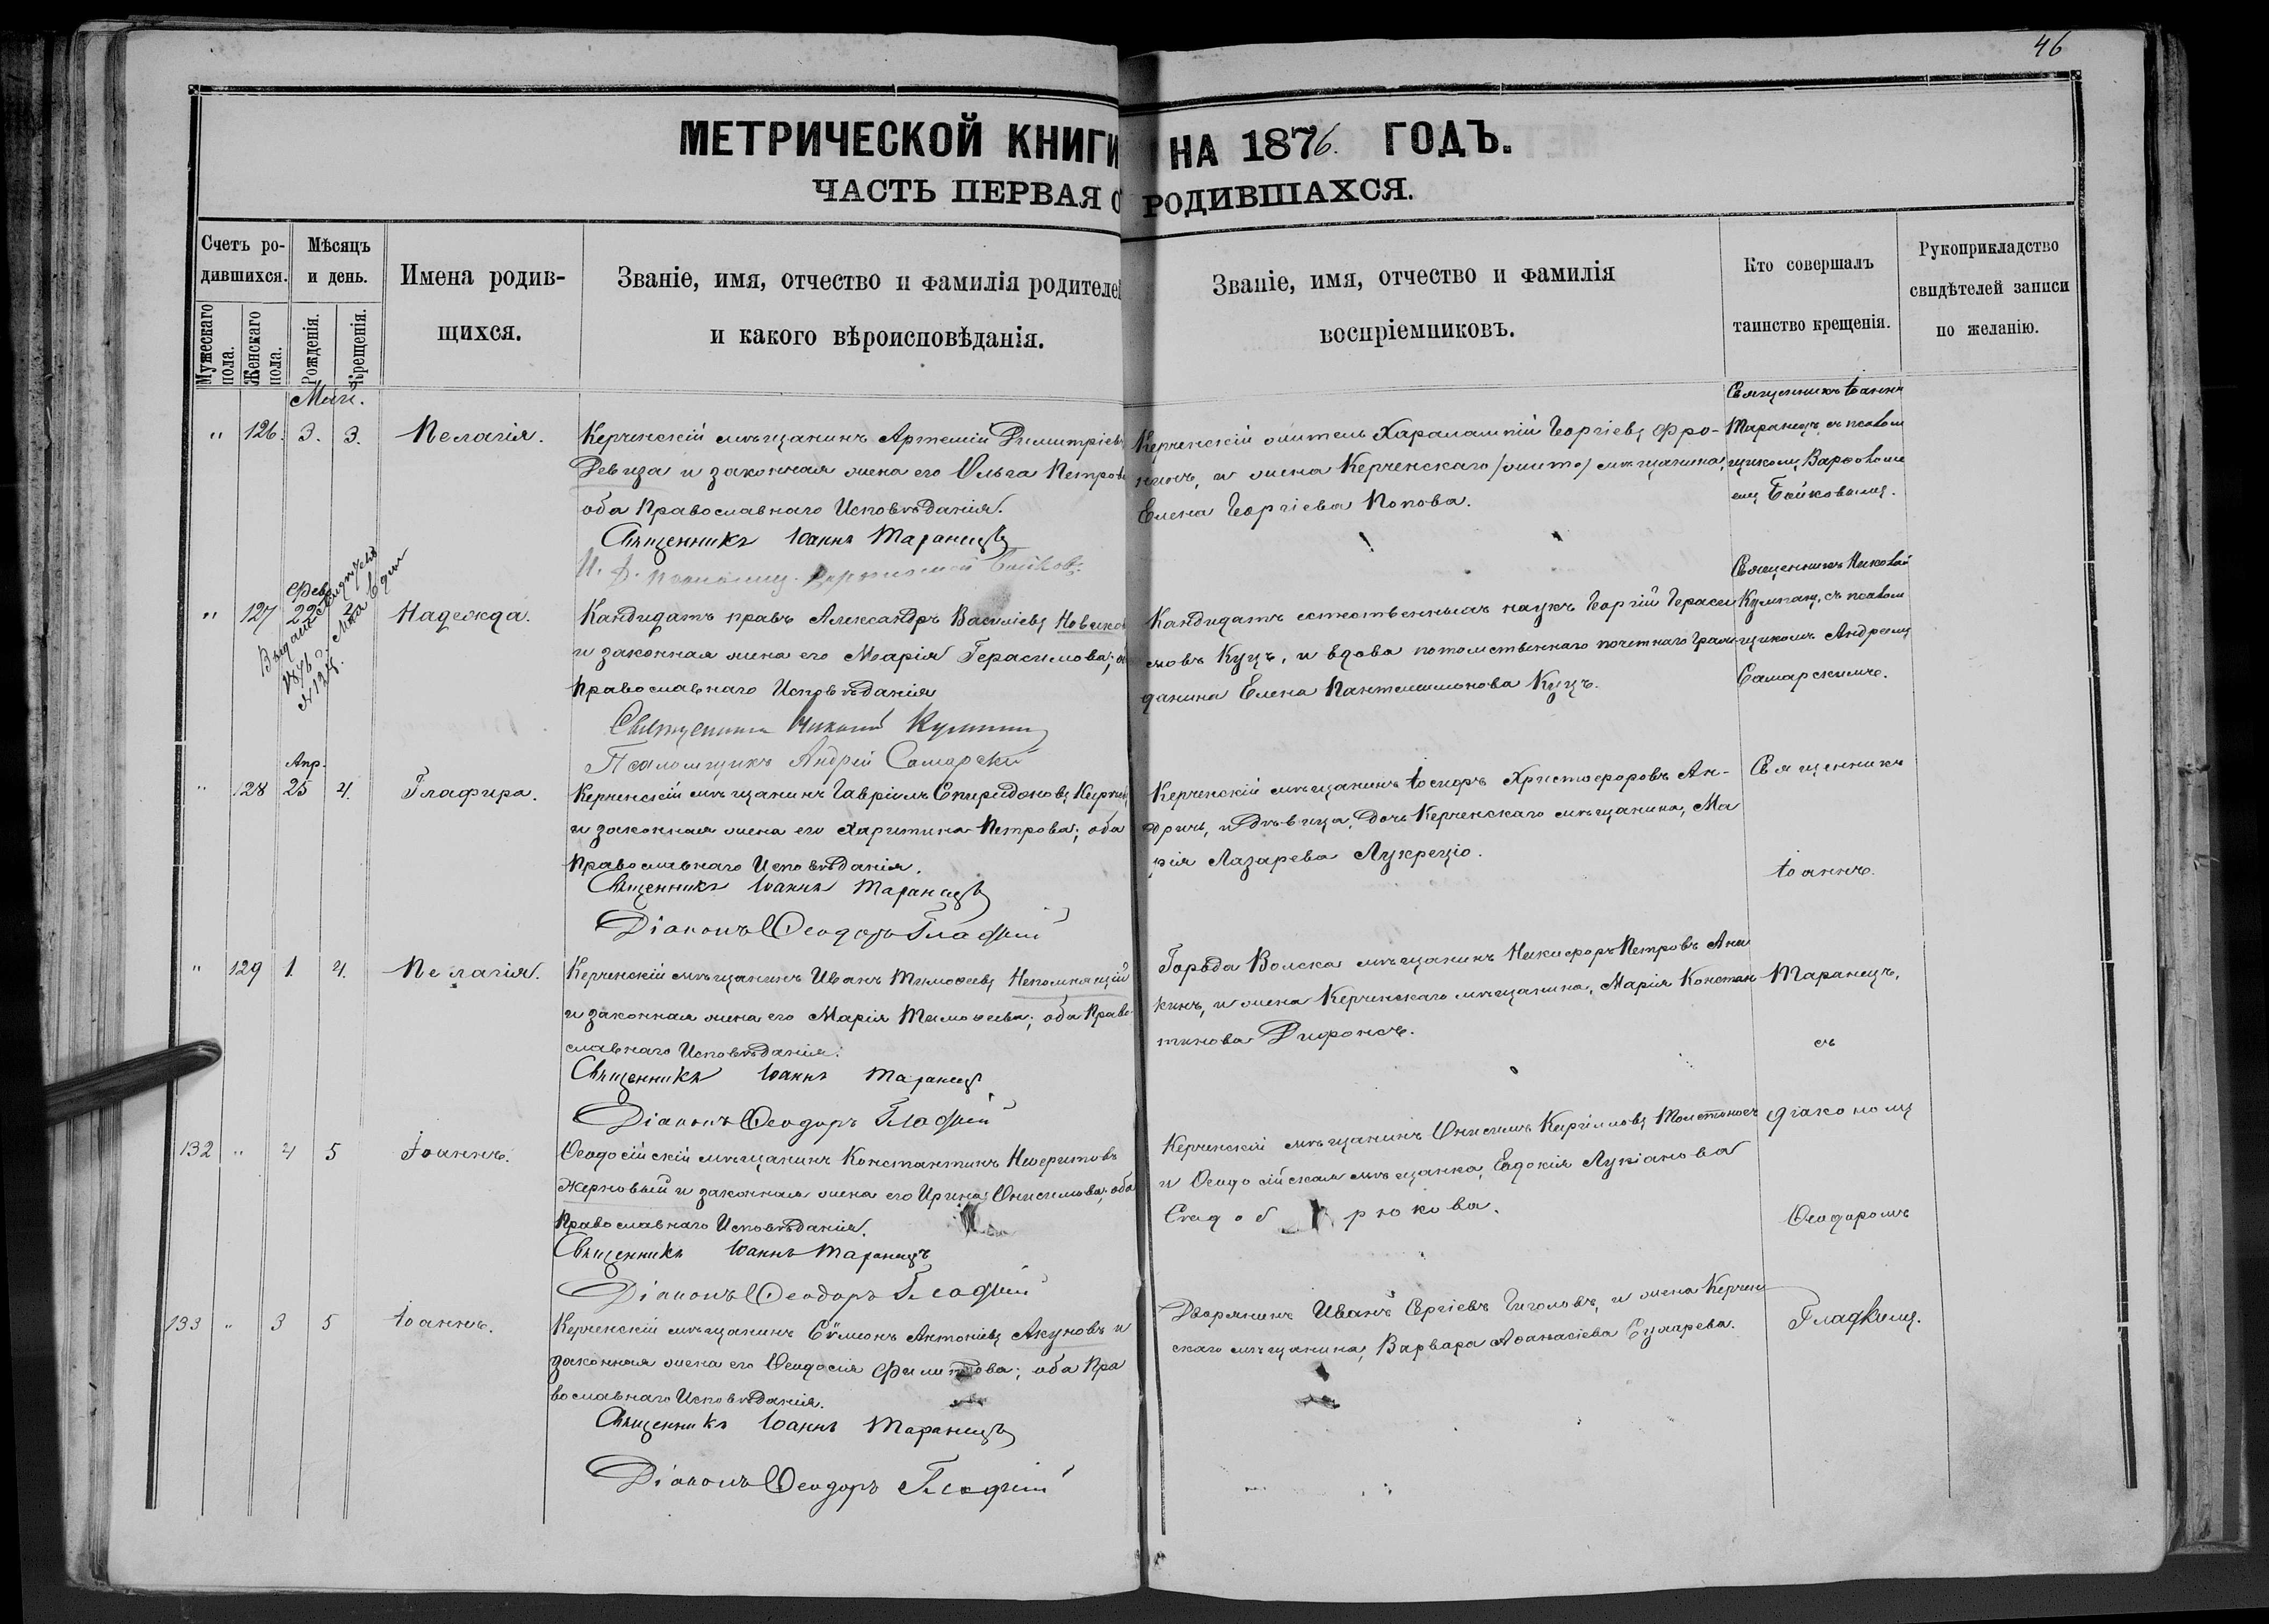 46
МЕТРИЧЕСКОЙ КНИГИ НА 1876. ГОДЪ.
ЧАСТЬ ПЕРВАЯ О РОДИВШАХСЯ.
Счетъ ро-
дившихся.
Мужескаго пола.
Женскаго пола.
Мѣсяцъ
и день.
Рожденія.
Крещенія.
Имена родив-
щихся.
Званіе, имя, отчество и фамилія родителей
и какого вѣроисповѣданія.
Званіе, имя, отчество и фамилія
воспріемниковъ.
Кто совершалъ
таинство крещенія.
Рукоприкладство
свидѣтелей записи
по желанію.
Май.
" 126. 3. 3. Пелагія.
Керченскій мѣщанинъ Артемій Димитріевъ
Ревиза и законная жена его Ольга Петрова
оба Православнаго Исповѣданія.
Священникъ Іоаннъ Таранецъ
И. д. псаломщ. Варѳоломей Бойков
Керченскій житель Харалампій Георгіевъ Фро-
и жена Керченскаго мѣщанина,
Елена Георгіева Попова.
Священникъ Іоаннъ
Таранецъ, съ псалом
щикомъ Варѳоломе
емъ Бойковымъ.
Фев.
" 127 22 2 Надежда.
1876 г. Мая
Кандидатъ правъ Александръ Васильевъ Новиков
и законная жена его Марія Герасимова; об
Православнаго Исповѣданія
Священникъ Николай
Псаломщикъ Андрей Самарскій
Кандидатъ естественныхъ наукъ Георгій Гераси
мовъ Куцъ, и вдова потомственнаго почетнаго граж
данина Елена Пантелеимонова Куцъ.
Священникъ Николай
съ псалом
щикомъ Андреемъ
Самарскимъ.
Апр.
" 128 25 4. Глафира.
Керченскій мѣщанинъ Гавріилъ Спиридоновъ
и законная жена его Харитина Петрова; оба
Православнаго Исповѣданія.
Священникъ Іоаннъ Таранецъ
Діаконъ Ѳеодоръ Гладкій
Керченскій мѣщанинъ Іосифъ Христофоровъ Ан-
дричъ, и дѣвица, дочь Керченскаго мѣщанина, Ма
рія Лазарева Лукреціо.
Священникъ
Іоаннъ
" 129 1. 4. Пелагія.
Керченскій мѣщанинъ Иванъ Тимоѳеевъ Непомнящій
и законная жена его Марія Тимоѳеева; оба Право-
славнаго Исповѣданія.
Священникъ Іоаннъ Таранецъ
Діаконъ Ѳеодоръ Гладкій
Города Вольска мѣщанинъ Никифоръ Петровъ Ана
кинъ, и жена Керченскаго мѣщанина, Марія Констан
тинова Дифонсъ.
Таранецъ,
съ
132 " 4 5 Іоаннъ.
Ѳеодосійскій мѣщанинъ Константинъ
Жерновый и законная жена его Ирина Онисимова; оба
Православнаго Исповѣданія.
Священникъ Іоаннъ Таранецъ
Діаконъ Ѳеодоръ Гладкій
Керченскій мѣщанинъ Онисимъ Кирилловъ Толстоносъ
и Ѳеодосійская мѣщанка, Евдокія Лукіанова
діакономъ
Ѳеодоромъ
133 " 3 5 Іоаннъ.
Керченскій мѣщанинъ Симіонъ Антоніевъ Акуновъ и
законная жена его Ѳеодосія Филиппова; оба Пра
вославнаго Исповѣданія.
Священникъ Іоаннъ Таранецъ
Діаконъ Ѳеодоръ Гладкій
Дворянинъ Иванъ Сергіевъ Гиголовъ, и жена Керчен
скаго мѣщанина, Варвара Аѳанасіева
Гладкимъ.